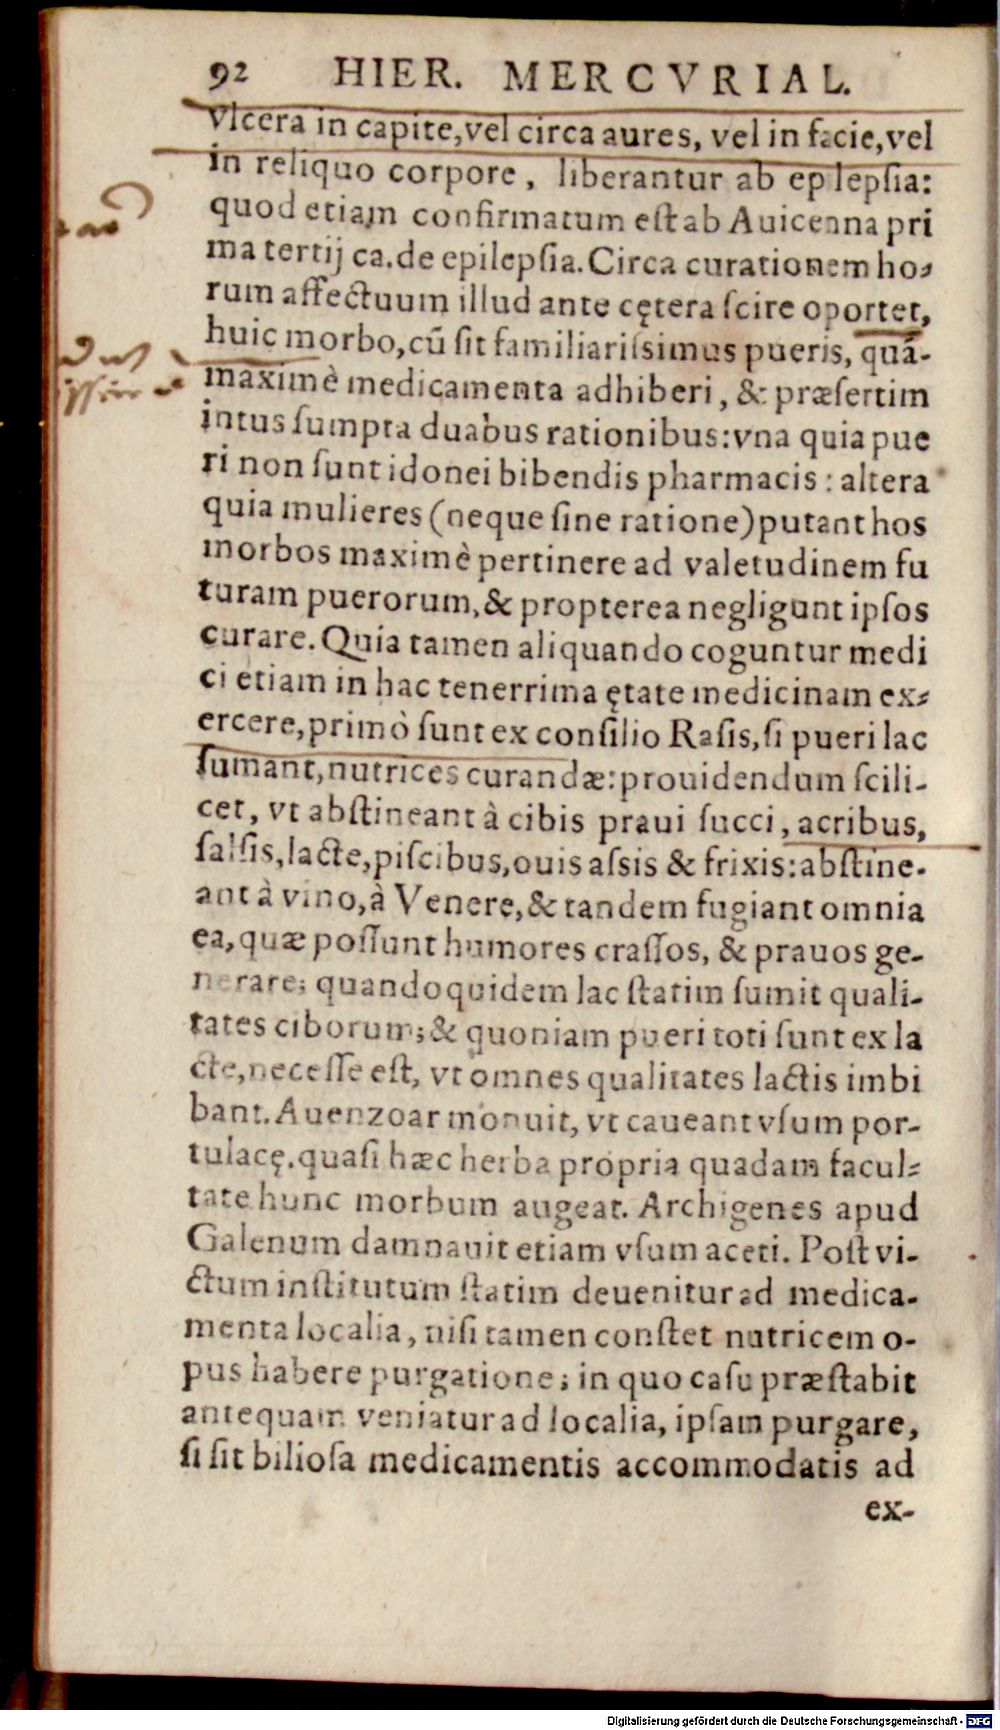 92 HIER. MERCVRIAL.
vlcera in capite, vel circa aures, vel in facie, vel
in reliquo corpore, liberantur ab epilepsia:
quod etiam confirmatum est ab Auicenna pri
ma tertij ca. de epilepsia. Circa curationem ho-
rum affectuum illud ante cętera scire oportet,
huic morbo, cũ sit familiarissimus pueris, quã-
maximè medicamenta adhiberi, & præsertim
intus sumpta duabus rationibus: vna quia pue
ri non sunt idonei bibendis pharmacis: altera
quia mulieres (neque sine ratione) putant hos
morbos maximè pertinere ad valetudinem fu
turam puerorum, & propterea negligunt ipsos
curare. Quia tamen aliquando coguntur medi
ci etiam in hac tenerrima ętate medicinam ex-
ercere, primò sunt ex consilio Rasis, si pueri lac
sumant, nutrices curandæ: prouidendum scili-
cet, vt abstineant à cibis praui succi, acribus,
salsis, lacte, piscibus, ouis assis & frixis: abstine-
ant à vino, à Venere, & tandem fugiant omnia
ea, quæ possunt humores crassos, & prauos ge-
nerare; quandoquidem lac statim sumit quali-
tates ciborum; & quoniam pueri toti sunt ex la
cte, necesse est, vt omnes qualitates lactis imbi
bant. Auenzoar monuit, vt caueant vsum por-
tulacę. quasi hæc herba propria quadam facul-
tate hunc morbum augeat. Archigenes apud
Galenum damnauit etiam vsum aceti. Post vi-
ctum institutum statim deuenitur ad medica-
menta localia, nisi tamen constet nutricem o-
pus habere purgatione; in quo casu præstabit
antequam veniatur ad localia, ipsam purgare,
si sit biliosa medicamentis accommodatis ad
ex-
Digitalisierung gefördert durch die Deutsche Forschungsgemeinschaft - DFG